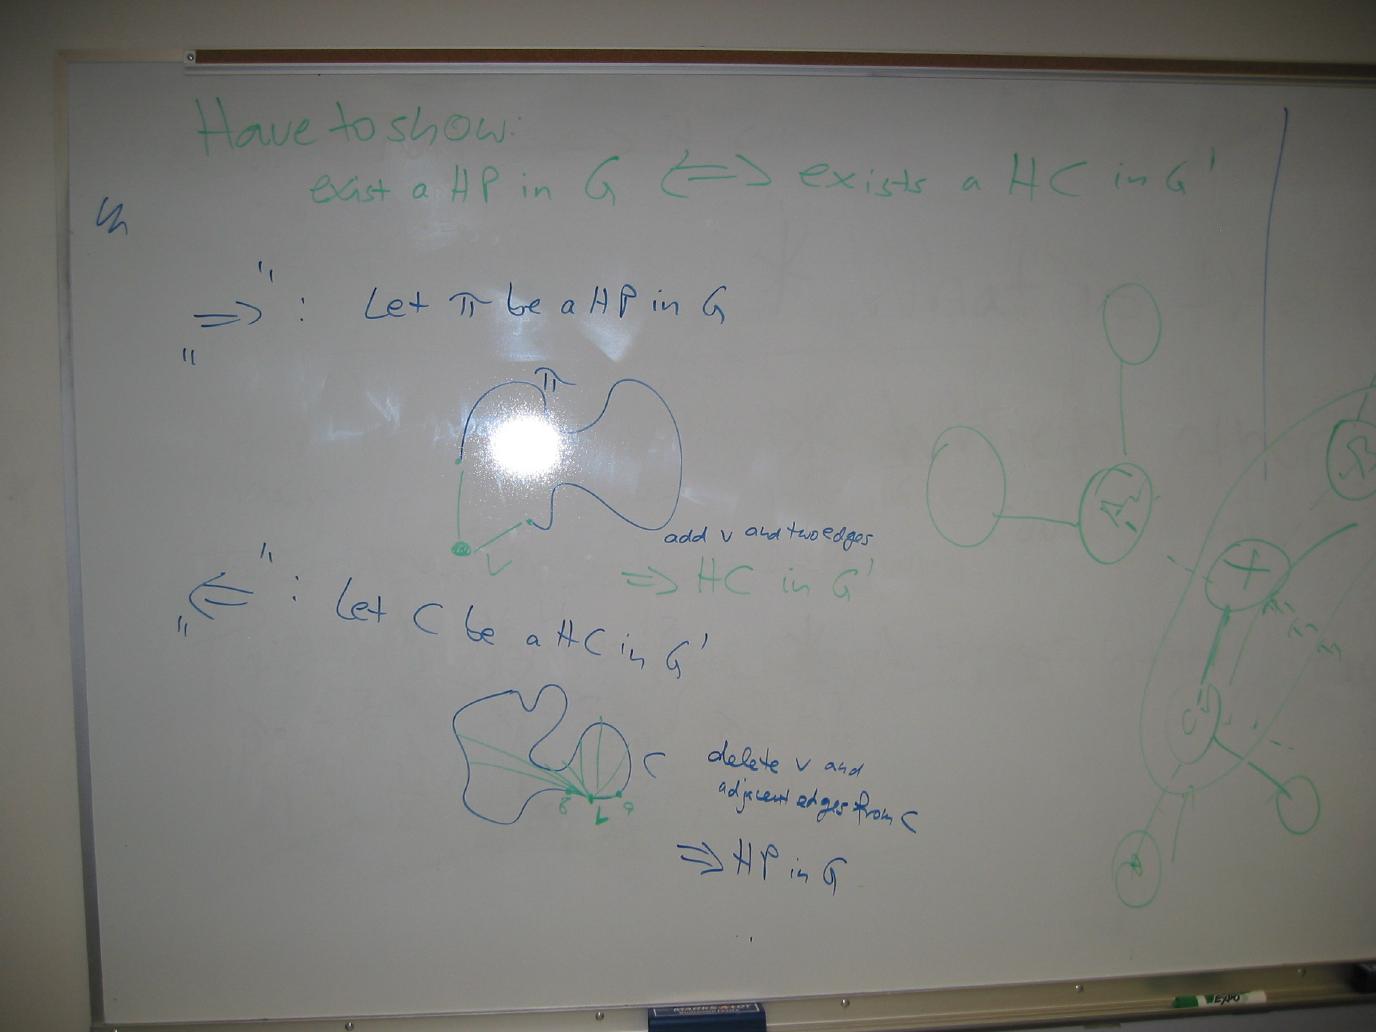 Have to show:
exist a HP in G <=> exists a HC in G'
"=>" : Let π be a HP in G
π
add v and two edges
v
=> HC in G'
"<=" : Let C be a HC in G'
C
delete v and
adjacent edges from C
=> HP in G
EXPO